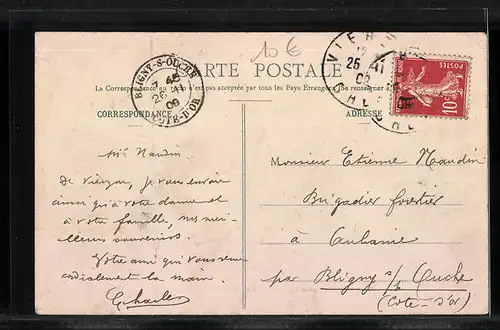 10 €
BLIGNY-S-OUCHE
7 45
26 11
09
COTE-D'OR
CARTE POSTALE
VIERZON
25 11
09
CHER
POSTES
10c
La Correspondance au recto n'est pas acceptée par tous les Pays Étrangers (Se renseigner à la Poste)
CORRESPONDANCE
ADRESSE
Mr Naudin
De Vierzon, je vous envoie
ainsi qu'à votre dame et
à votre famille, mes meil-
leurs souvenirs.
Votre ami qui vous serre
cordialement la main.
Charles
Monsieur Etienne Naudin
Brigadier forestier
à Aubaine
par Bligny s/ Ouche
(Côte-d'or)